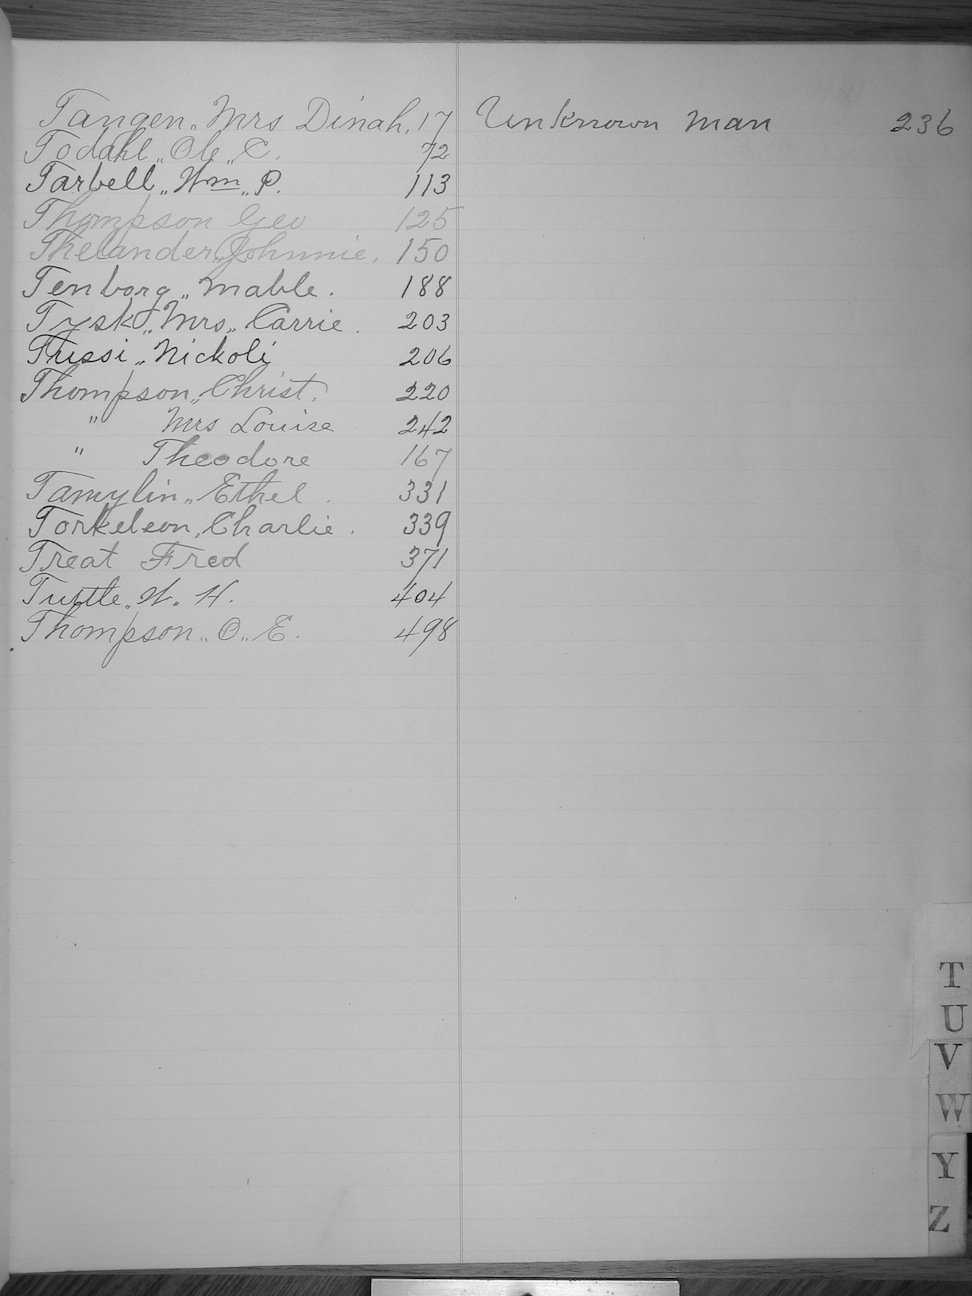 Tangen,, Mrs Dinah, 17
Todahl,, Ole,, C. 72
Tarbell,, Wm,, P. 113
Thompson Geo 125
Thelander,, Johnnie, 150
Tenborg,, Mable. 188
Tysk,, Mrs,, Carrie. 203
Trissi,, Nickoli 206
Thompson,, Christ. 220
" Mrs Louise 242
" Theodore 167
Tamylin,, Ethel. 331
Torkelson, Charlie. 339
Treat Fred 371
Tuttle,, W. H. 404
Thompson,, O,, E. 498
Unknown man 236
T
U
V
W
Y
Z